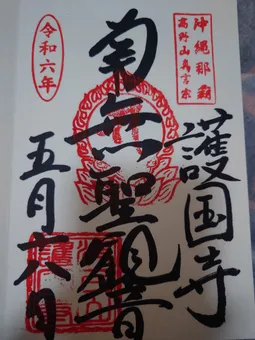 沖縄那覇
高野山真言宗
護国寺
南無聖観音
令和六年
五月六日